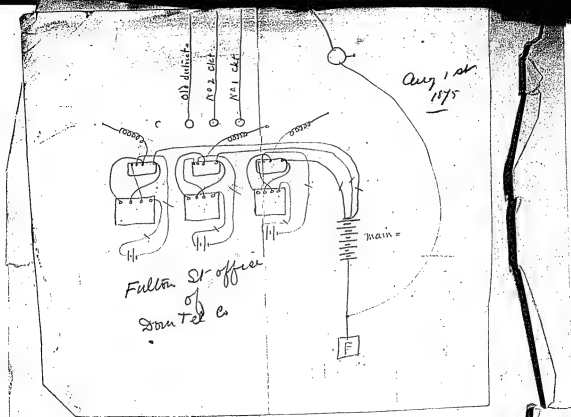 Old district
No 2 ckt
No 1 ckt
Aug 1st
1875
main =
Fulton St office
of
Dom Tel Co
F